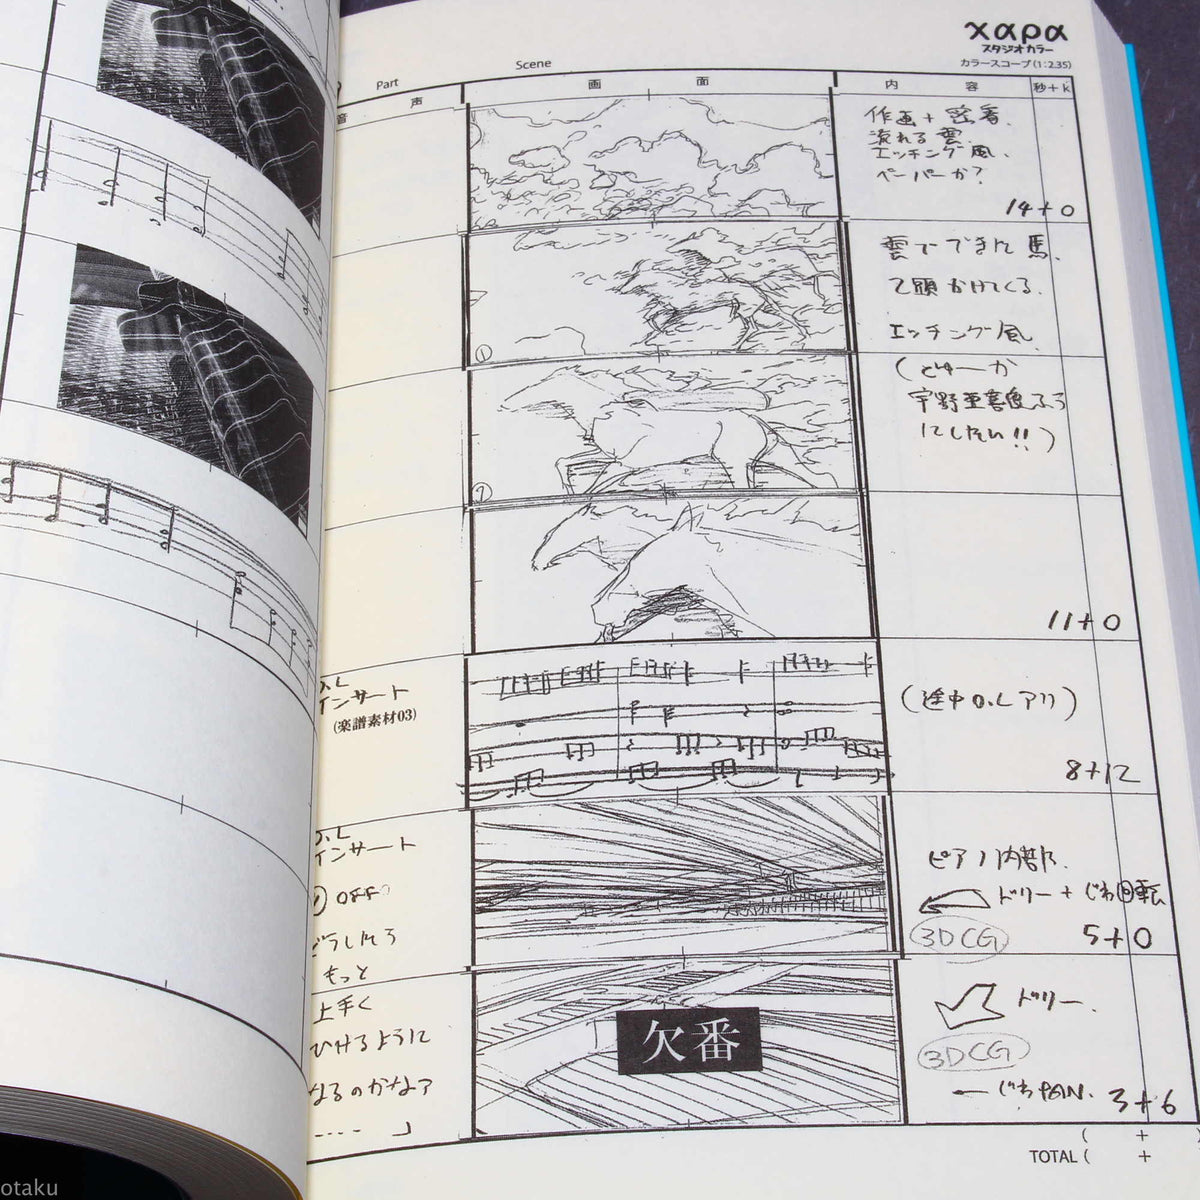 χαρα
スタジオカラー
カラースコープ(1:2.35)
Part
Scene
音 声
画 面
内 容
秒+k
作画+密着.
流れる雲
エッチング風.
ペーパーか?
14+0
雲でできた馬.
2頭かけてくる.
エッチング風.
(どゆーか
宇野亜喜良ふう
にしたい!!)
11+0
O.L
インサート
(楽譜素材03)
(途中O.Lアリ)
8+12
O.L
インサート
OFF
どうしたら
もっと
ピアノ内部.
ドリー+じわ回転
3DCG
5+0
上手く
ひけるように
なるのかなァ
....」
欠番
ドリー.
3DCG
←じわPAN.
3+6
( + )
TOTAL ( +
otaku